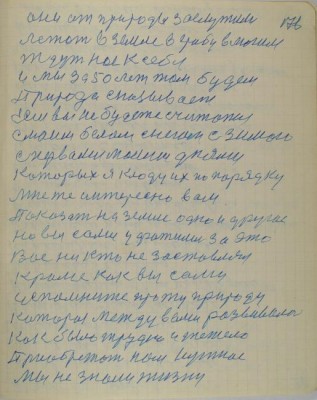 они от природы заслужили 176
лежат в земле в гробу в могили
ждут нас к себя
и мы за 50 лет там будем
Природа сказывает
Если вы не будете считать
с моим белом снегом с Зимою
с
которых я кладу их по порядку
мне те интересно вам
Показат на земле одно и другое
но вы сами ухватили за это
Вас ни кто не заставлял
Кроме как вы сами
исполните эту природу
Которая между вами развивалась
Как было трудно и тяжело
Приобретат нам нужное
Мы не знали жизни